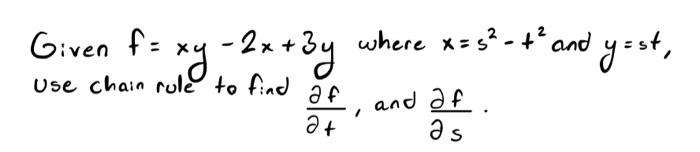 Given f = xy - 2x + 3y where x = s² - t² and y = st,
use chain rule to find ∂f/∂t, and ∂f/∂s.